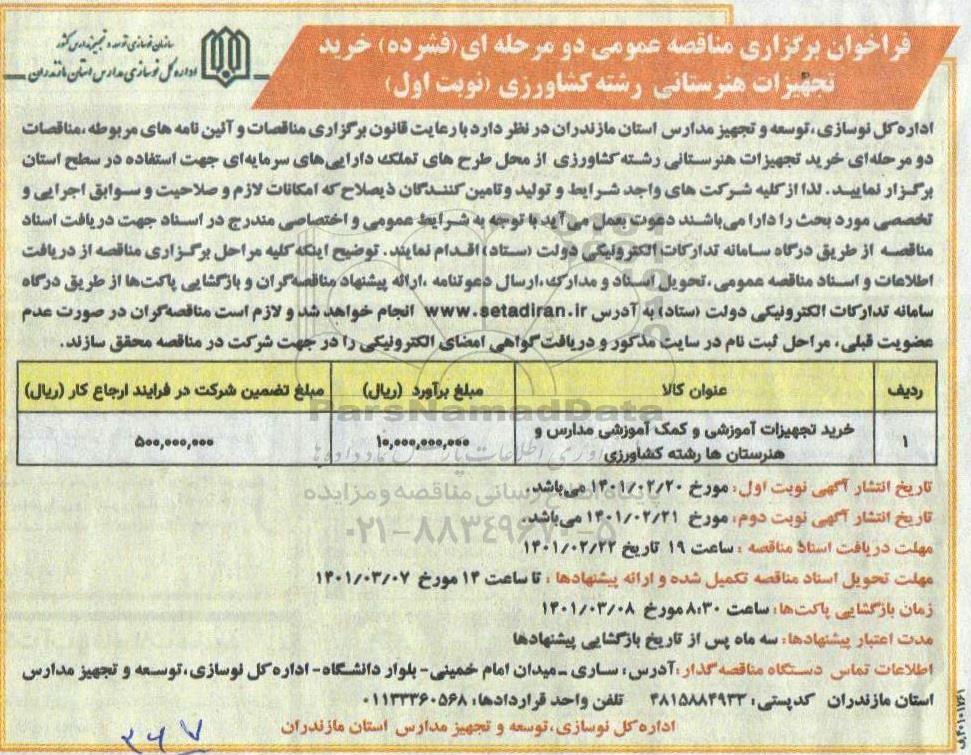 سازمان نوسازی توسعه و تجهیز مدارس کشور
اداره کل نوسازی مدارس استان مازندران
فراخوان برگزاری مناقصه عمومی دو مرحله ای (فشرده) خرید
تجهیزات هنرستانی رشته کشاورزی (نوبت اول)
اداره کل نوسازی، توسعه و تجهیز مدارس استان مازندران در نظر دارد با رعایت قانون برگزاری مناقصات و آئین نامه های مربوطه، مناقصات
دو مرحله‌ای خرید تجهیزات هنرستانی رشته کشاورزی از محل طرح های تملک دارایی‌های سرمایه‌ای جهت استفاده در سطح استان
برگزار نمایید. لذا از کلیه شرکت های واجد شرایط و تولید و تامین کنندگان ذیصلاح که امکانات لازم و صلاحیت و سوابق اجرایی و
تخصصی مورد بحث را دارا می‌باشند دعوت بعمل می‌آید با توجه به شرایط عمومی و اختصاصی مندرج در اسناد جهت دریافت اسناد
مناقصه از طریق درگاه سامانه تدارکات الکترونیکی دولت (ستاد) اقدام نمایند. توضیح اینکه کلیه مراحل برگزاری مناقصه از دریافت
اطلاعات و اسناد مناقصه عمومی، تحویل اسناد و مدارک، ارسال دعوتنامه ، ارائه پیشنهاد مناقصه‌گران و بازگشایی پاکت‌ها از طریق درگاه
سامانه تدارکات الکترونیکی دولت (ستاد) به آدرس www.setadiran.ir انجام خواهد شد و لازم است مناقصه‌گران در صورت عدم
عضویت قبلی، مراحل ثبت نام در سایت مذکور و دریافت گواهی امضای الکترونیکی را در جهت شرکت در مناقصه محقق سازند.
ردیف عنوان کالا مبلغ برآورد (ریال) مبلغ تضمین شرکت در فرایند ارجاع کار (ریال)
ParsNamadData
۱ خرید تجهیزات آموزشی و کمک آموزشی مدارس و هنرستان ها رشته کشاورزی ۱۰,۰۰۰,۰۰۰,۰۰۰ ۵۰۰,۰۰۰,۰۰۰
تاریخ انتشار آگهی نوبت اول: مورخ ۱۴۰۱/۰۲/۲۰ می‌باشد.
پایگاه اطلاع رسانی مناقصه و مزایده
تاریخ انتشار آگهی نوبت دوم: مورخ ۱۴۰۱/۰۲/۲۱ می‌باشد.
۰۲۱-۸۸۳۴۹۶۷۰-۵
مهلت دریافت اسناد مناقصه : ساعت ۱۹ تاریخ ۱۴۰۱/۰۲/۲۲
مهلت تحویل اسناد مناقصه تکمیل شده و ارائه پیشنهادها : تا ساعت ۱۴ مورخ ۱۴۰۱/۰۳/۰۷
زمان بازگشایی پاکت‌ها: ساعت ۸:۳۰ مورخ ۱۴۰۱/۰۳/۰۸
مدت اعتبار پیشنهادها: سه ماه پس از تاریخ بازگشایی پیشنهادها
اطلاعات تماس دستگاه مناقصه گذار: آدرس: ساری - میدان امام خمینی - بلوار دانشگاه - اداره کل نوسازی، توسعه و تجهیز مدارس
استان مازندران کدپستی: ۴۸۱۵۸۸۴۹۳۳ تلفن واحد قراردادها: ۰۱۱۳۳۳۶۰۵۶۸
اداره کل نوسازی، توسعه و تجهیز مدارس استان مازندران